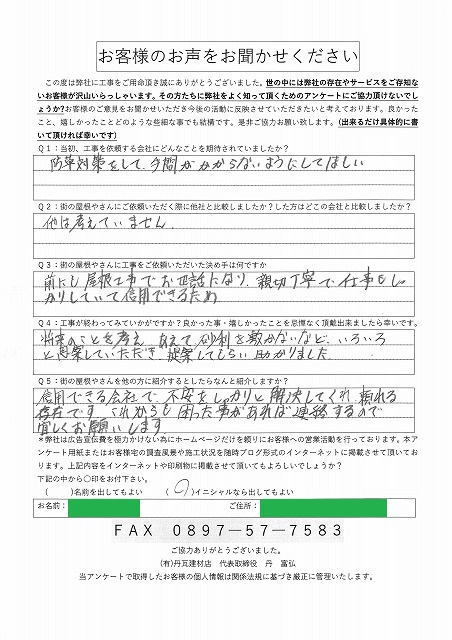 お客様のお声をお聞かせください
この度は弊社に工事をご用命頂き誠にありがとうございました。世の中には弊社の存在やサービスをご存知ない
お客様が沢山いらっしゃいます。その方たちに弊社をよく知って頂くためのアンケートにご協力頂けないでし
ょうか?お客様のご意見をお聞かせいただき今後の活動に反映させていただきたいと考えております。良かった
こと、嬉しかったことどのような些細な事でも結構です。是非ご協力お願い致します。(出来るだけ具体的に書
いて頂ければ幸いです)
Q1:当初、工事を依頼する会社にどんなことを期待されていましたか?
防草対策をして、手間がかからないようにしてほしい
Q2:街の屋根やさんにご依頼いただく際に他社と比較しましたか?した方はどこの会社と比較しましたか?
他は考えていません
Q3:街の屋根やさんに工事をご依頼いただいた決め手は何ですか
前にも屋根工事でお世話になり、親切丁寧で仕事もしっ
かりしていて信用できるため
Q4:工事が終わってみていかがですか?良かった事・嬉しかったことを忌憚なく頂戴出来ましたら幸いです。
将来のことを考え、あえて砂利を敷かないなど、いろいろ
と思案していただき、提案してもらい助かりました。
Q5:街の屋根やさんを他の方に紹介するとしたらなんと紹介しますか?
信用できる会社で、不安をしっかりと解決してくれ、頼れる
存在です。これからも困った事があれば連絡するので
宜しくお願いします
*弊社は広告宣伝費を極力かけない為にホームページだけを頼りにお客様への営業活動を行っております。本ア
ンケート用紙またはお客様宅の調査風景や施工状況を随時ブログ形式のインターネットに掲載させて頂いてお
ります。上記内容をインターネットや印刷物に掲載させて頂いてもよろしいでしょうか?
下記の中から○印をお付下さい。
( )名前を出してもよい ( ○ )イニシャルなら出してもよい
お名前: ご住所:
FAX 0897-57-7583
ご協力ありがとうございました。
(有)丹瓦建材店 代表取締役 丹 富弘
当アンケートで取得したお客様の個人情報は関係法規に基づき厳正に管理いたします。